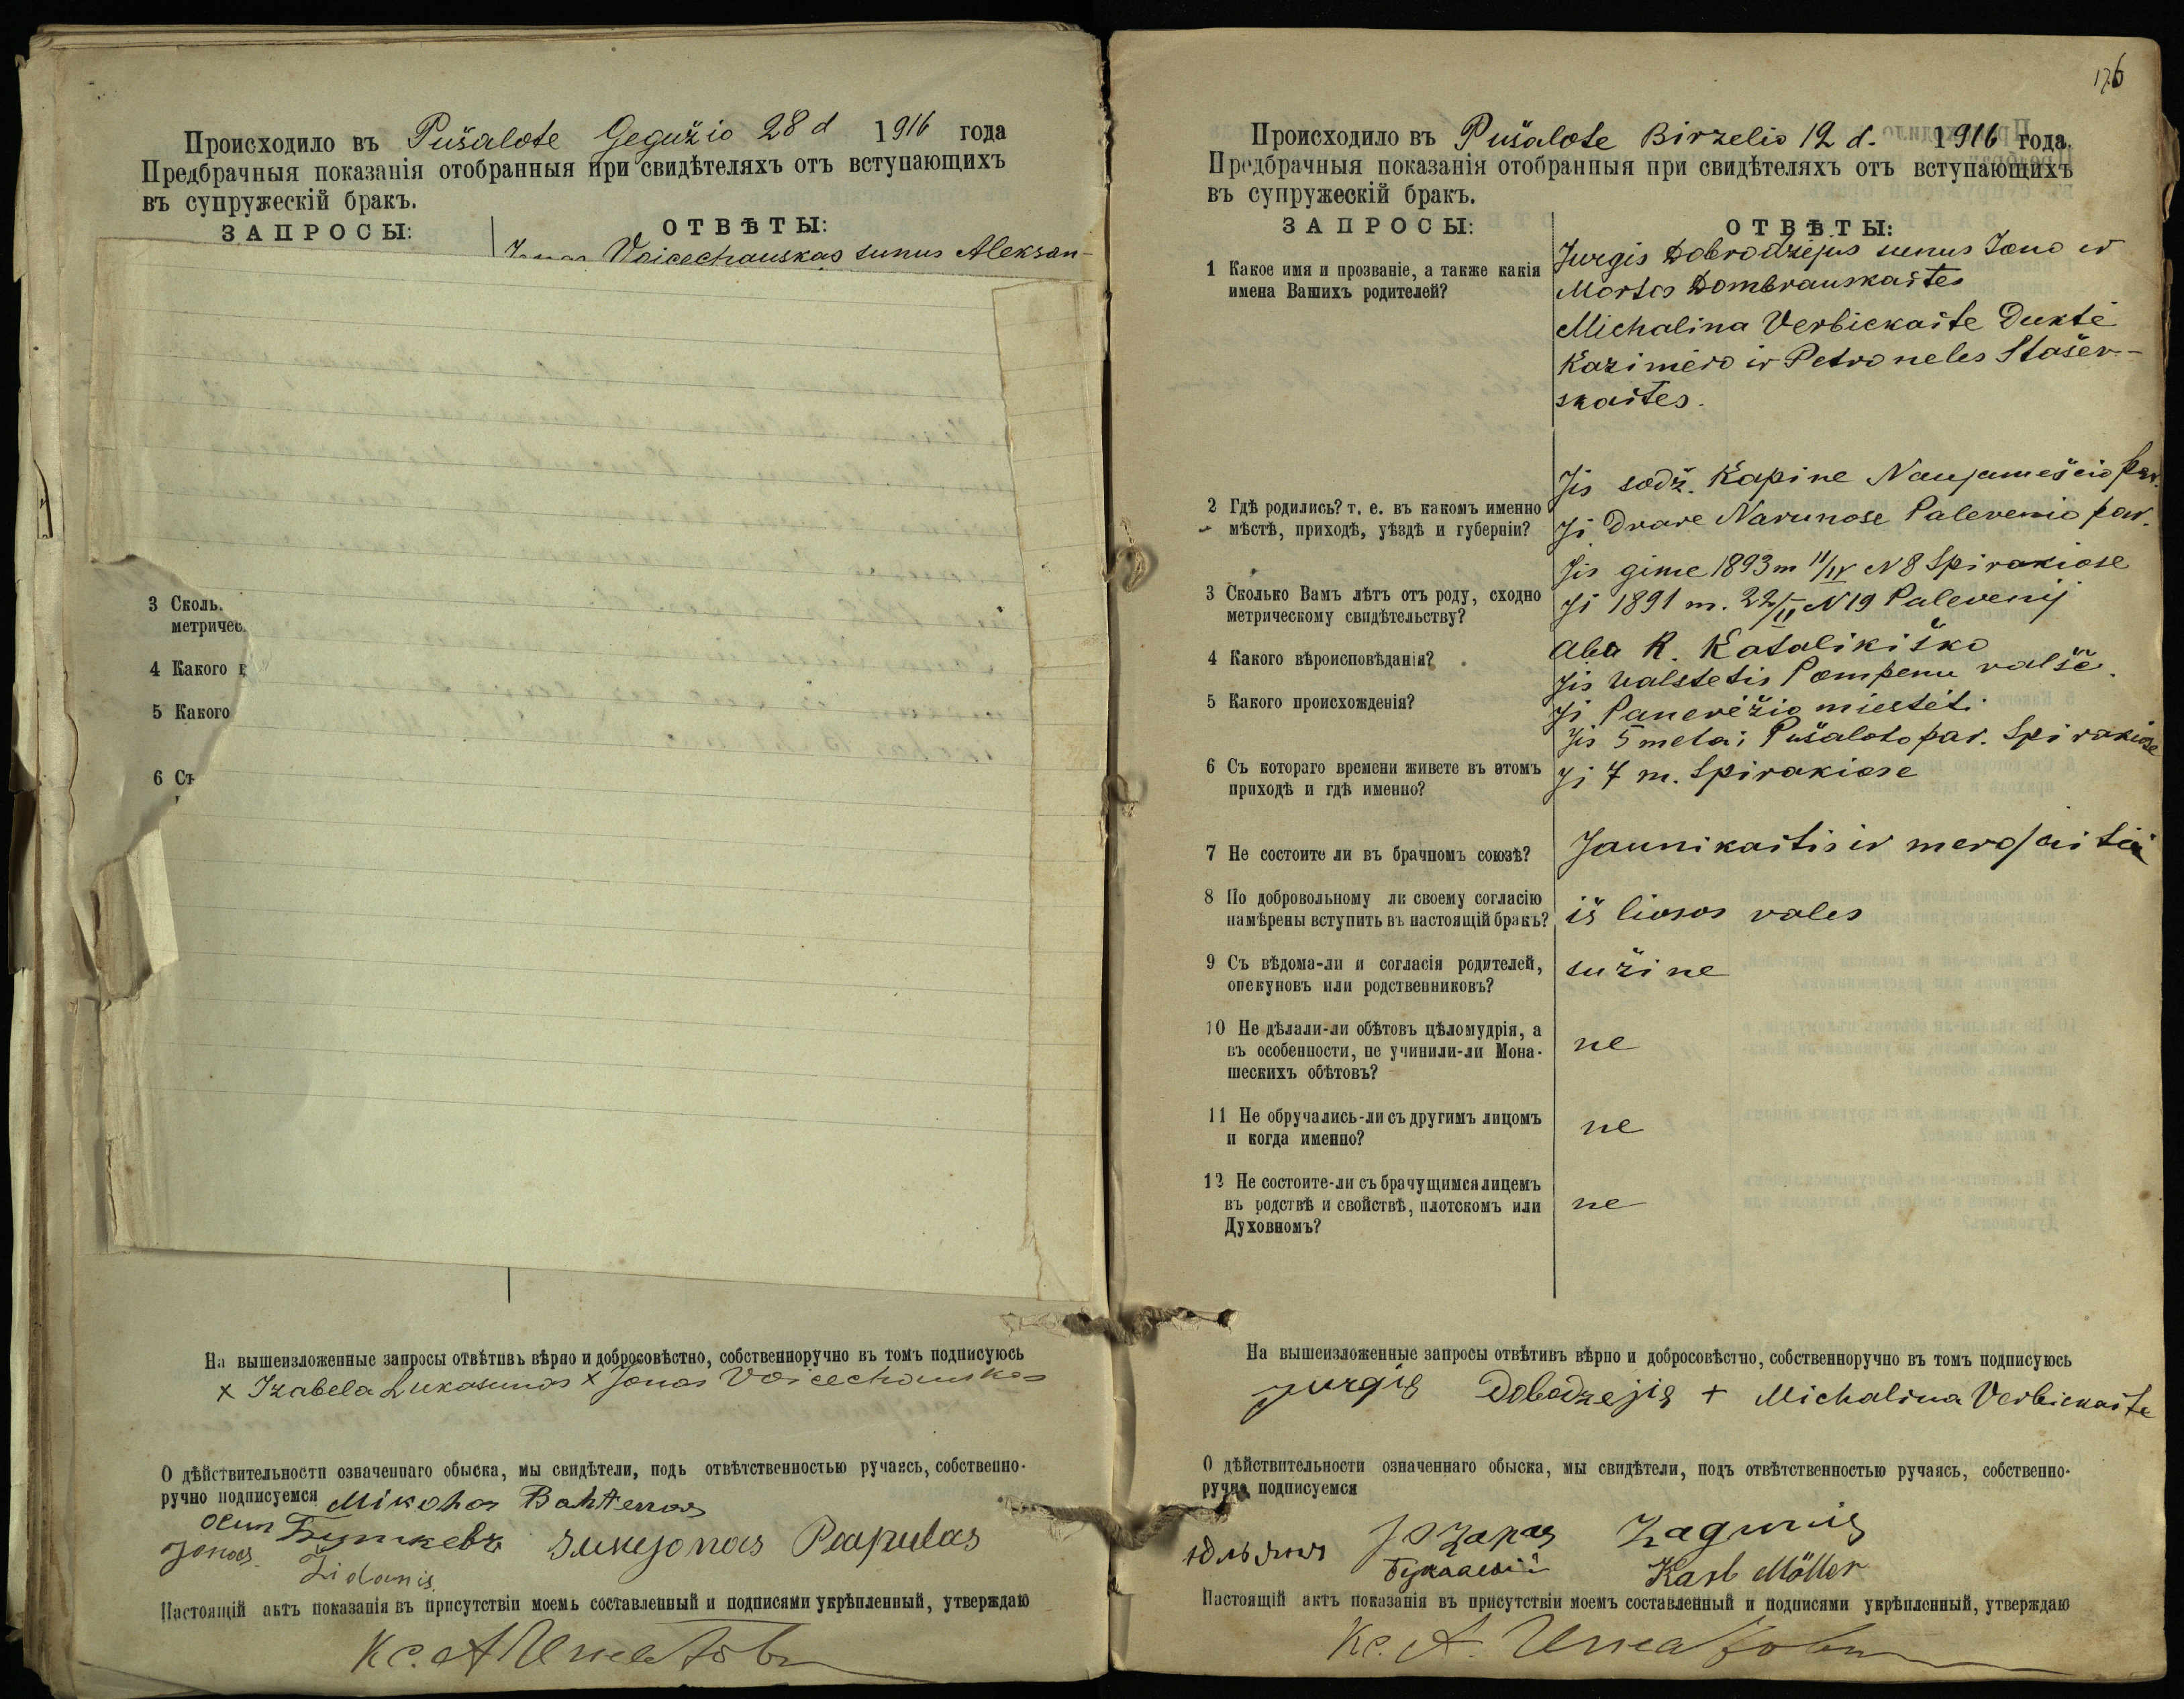 Происходило въ Pušalote Gegužio 28 d 1916 года
Предбрачныя показанія отобранныя при свидѣтеляхъ отъ вступающихъ
въ супружескій бракъ.
ЗАПРОСЫ:
ОТВѢТЫ:
Jonas Voicechauskas sunus Aleksan-
3 Сколь
метричес
4 Какого
5 Какого
6 Съ
На вышеизложенные запросы отвѣтивъ вѣрно и добросовѣстно, собственноручно въ томъ подписуюсь
x Izabela Lukosunas x Jonas Voicechauskas
О дѣйствительности означеннаго обыска, мы свидѣтели, подъ отвѣтственностью ручаясь, собственно-
ручно подписуемся
Jonas Židanis Papulas
Настоящій актъ показанія въ присутствіи моемъ составленный и подписями укрѣпленный, утверждаю
Кс. А
176
Происходило въ Pušalote Birželio 12 d. 1916 года.
Предбрачныя показанія отобранныя при свидѣтеляхъ отъ вступающихъ
въ супружескій бракъ.
ЗАПРОСЫ:
ОТВѢТЫ:
1 Какое имя и прозваніе, а также какія
имена Вашихъ родителей?
Jurgis Dobrodzėjus sunus Jono ir
Mortos Dombrauskaites
Michalina Verbickaite Duktė
Kazimėro ir Petroneles Stašev-
skaites.
2 Гдѣ родились? т. е. въ какомъ именно
мѣстѣ, приходѣ, уѣздѣ и губерніи?
Jis sodž. Kapine Naujamesčio par.
Ji Dvare Narunose Palevenio par.
3 Сколько Вамъ лѣтъ отъ роду, сходно
метрическому свидѣтельству?
Jis gime 1893 m 11/IV N 8 Spirakiose
Ji 1891 m. 22/II N 19 Palevenij
4 Какого вѣроисповѣданія?
Abu R. Katalikiško
5 Какого происхожденія?
Jis valstetis Pompenu valšč.
Ji Panevėžio miestėt.
6 Съ котораго времени живете въ этомъ
приходѣ и гдѣ именно?
Jis 5 metai Pušaloto par. Spirakiose
Ji 7 m. Spirakiose
7 Не состоите ли въ брачномъ союзѣ?
Jaunikaitis ir mergaitė
8 По добровольному ли своему согласію
намѣрены вступить въ настоящій бракъ?
iš liosos vales
9 Съ вѣдома-ли и согласія родителей,
опекуновъ или родственниковъ?
sužine
10 Не дѣлали-ли обѣтовъ цѣломудрія, а
въ особенности, не учинили-ли Мона-
шескихъ обѣтовъ?
ne
11 Не обручались-ли съ другимъ лицомъ
и когда именно?
ne
12 Не состоите-ли съ брачущимся лицемъ
въ родствѣ и свойствѣ, плотскомъ или
Духовномъ?
ne
На вышеизложенные запросы отвѣтивъ вѣрно и добросовѣстно, собственноручно въ томъ подписуюсь
Jurgis Dobodzejis + Michalina Verbickaite
О дѣйствительности означеннаго обыска, мы свидѣтели, подъ отвѣтственностью ручаясь, собственно-
ручно подписуемся
Zagunis
Karl Möller
Настоящій актъ показанія въ присутствіи моемъ составленный и подписями укрѣпленный, утверждаю
Кс. А.